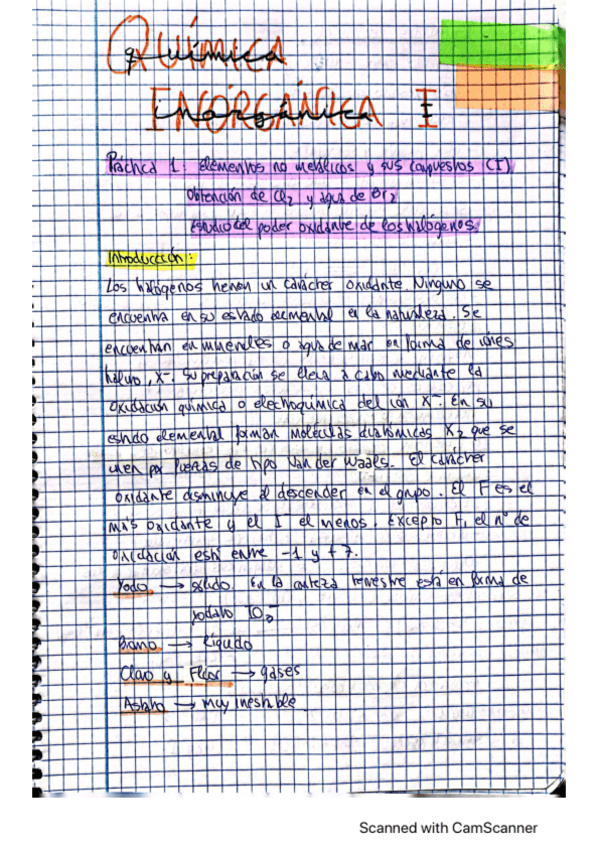 QUÍMICA química
INORGÁNICA inorgánica I
Práctica 1: elementos no metálicos y sus compuestos (I)
Obtención de Cl2 y agua de Br2
Estudio del poder oxidante de los halógenos.
Introducción:
Los halógenos tienen un carácter oxidante. Ninguno se
encuentra en su estado elemental en la naturaleza. Se
encuentran en minerales o agua de mar en forma de iones
haluro, X-. Su preparación se lleva a cabo mediante la
oxidación química o electroquímica del ión X-. En su
estado elemental forman moléculas diatómicas X2 que se
unen por fuerzas de tipo Van der Waals. El carácter
oxidante disminuye al descender en el grupo. El F es el
más oxidante y el I el menos. Excepto F, el nº de
oxidación está entre -1 y +7.
Yodo → sólido. En la corteza terrestre está en forma de
yodato IO3-
Bromo → Líquido
Cloro y Flúor → gases
Astato → muy inestable
Scanned with CamScanner